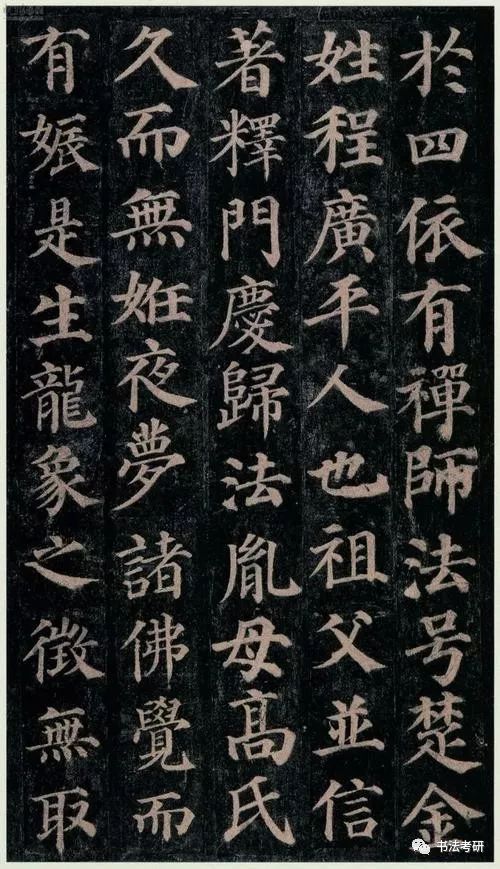 於四依有禪師法号楚金
姓程廣平人也祖父並信
著釋門慶歸法胤母髙氏
久而無姙夜夢諸佛覺而
有娠是生龍象之徵無取
书法考研